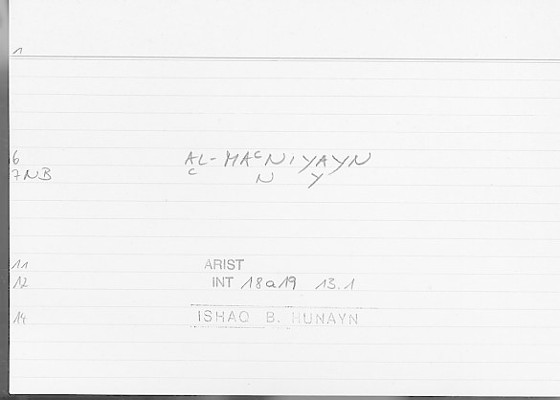 1
6 AL-MAᶜNIYAYN
7NB C N Y
11 ARIST
12 INT 18a19 13.1
14 ISHAQ B. HUNAYN